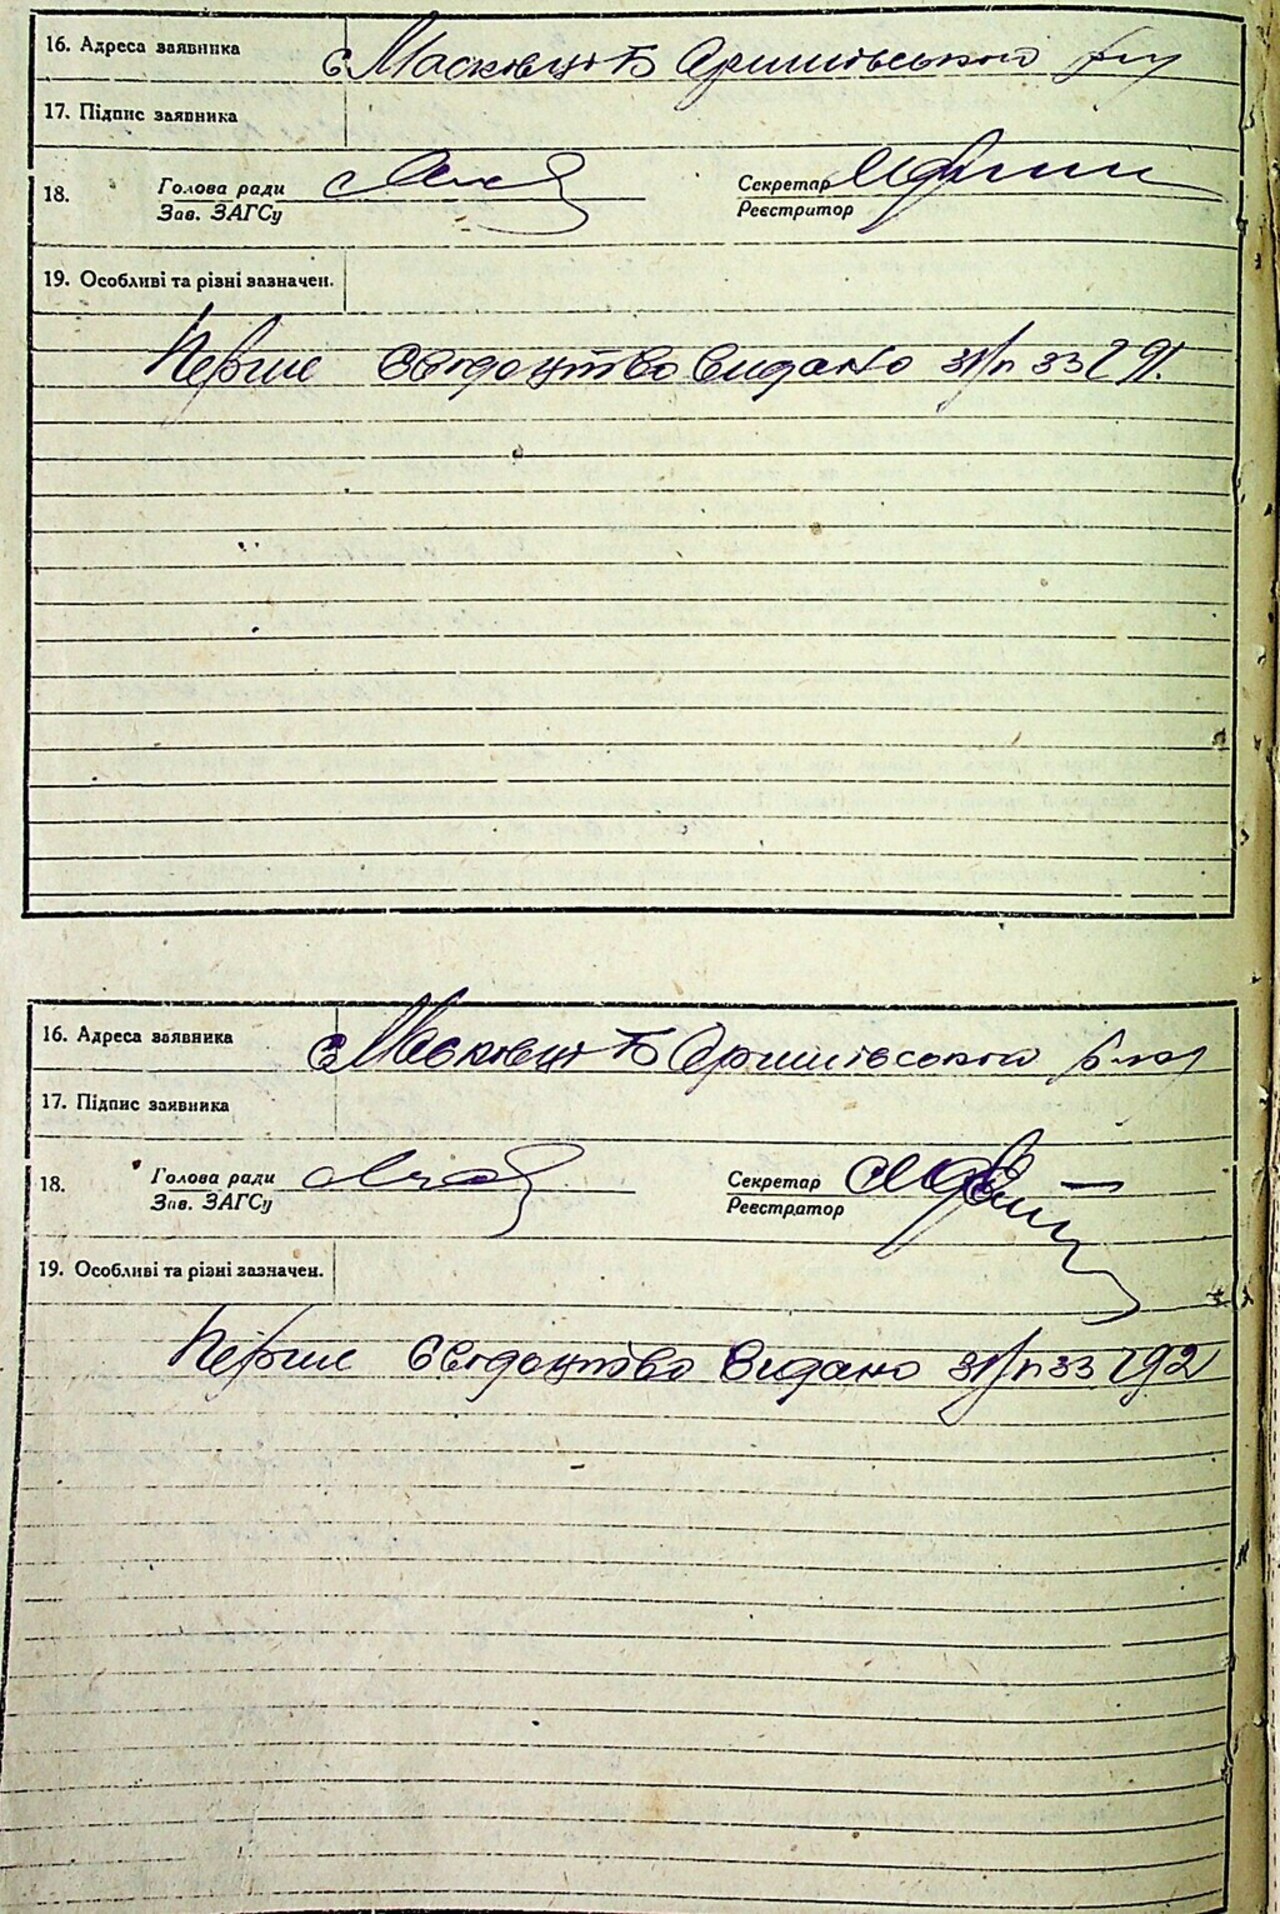 16. Адреса заявника с Масківці Б
17. Підпис заявника
18. Голова ради Секретар
Зав. ЗАГСу Реєстритор
19. Особливі та різні зазначен.
Перше свідоцтво видано 31/п 33 291.
16. Адреса заявника с Масківці Б
17. Підпис заявника
18. Голова ради Секретар
Зав. ЗАГСу Реєстратор
19. Особливі та різні зазначен.
Перше свідоцтво видано 31/п 33 292